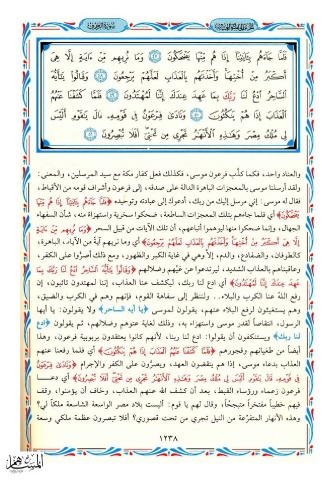 سورة الزخرف
فَلَمَّا جَاءَهُم بِآيَاتِنَا إِذَا هُم مِّنْهَا يَضْحَكُونَ ﴿٤٧﴾ وَمَا نُرِيهِم مِّنْ آيَةٍ إِلَّا هِيَ
أَكْبَرُ مِنْ أُخْتِهَا وَأَخَذْنَاهُم بِالْعَذَابِ لَعَلَّهُمْ يَرْجِعُونَ ﴿٤٨﴾ وَقَالُوا يَا أَيُّهَ
السَّاحِرُ ادْعُ لَنَا رَبَّكَ بِمَا عَهِدَ عِندَكَ إِنَّنَا لَمُهْتَدُونَ ﴿٤٩﴾ فَلَمَّا كَشَفْنَا عَنْهُمُ
الْعَذَابَ إِذَا هُمْ يَنكُثُونَ ﴿٥٠﴾ وَنَادَى فِرْعَوْنُ فِي قَوْمِهِ قَالَ يَا قَوْمِ أَلَيْسَ
لِي مُلْكُ مِصْرَ وَهَذِهِ الْأَنْهَارُ تَجْرِي مِن تَحْتِي أَفَلَا تُبْصِرُونَ ﴿٥١﴾
والعناد واحد، فكما كذّب فرعون موسى، فكذلك فعل كفار مكة مع سيد المرسلين، والمعنى:
ولقد أرسلنا موسى بالمعجزات الباهرة الدالة على صدقه، إلى فرعون وأشراف قومه من الأقباط،
فقال له موسى: إني مرسل إليك من ربك، أدعوك إلى عبادته وتوحيده ﴿فَلَمَّا جَاءَهُم بِآيَاتِنَا إِذَا هُم مِّنْهَا
يَضْحَكُونَ﴾ أي فلما جاءهم بتلك المعجزات الساطعة، ضحكوا سخرية واستهزاء منه، شأن السفهاء
الجهال، وإنما ضحكوا منها ليوهموا أتباعهم، أن تلك الآيات من قبيل السحر ﴿وَمَا نُرِيهِم مِّنْ آيَةٍ
إِلَّا هِيَ أَكْبَرُ مِنْ أُخْتِهَا وَأَخَذْنَاهُم بِالْعَذَابِ لَعَلَّهُمْ يَرْجِعُونَ﴾ أي ما نريهم آية من الآيات، الباهرة،
كالطوفان، والضفادع، والدم، إلا وهي في غاية الكبر والظهور، ومع ذلك أصرّوا على الكفر،
وعاقبناهم بالعذاب الشديد، ليرتدعوا عن غيّهم وضلالهم ﴿وَقَالُوا يَا أَيُّهَ السَّاحِرُ ادْعُ لَنَا رَبَّكَ بِمَا
عَهِدَ عِندَكَ إِنَّنَا لَمُهْتَدُونَ﴾ أي ادع لنا ربك، ليكشف عنا العذاب، إننا لمهتدون تائبون، إن
رفع اللهُ عنا الكرب والبلاء.. ولننظر إلى سفاهة القوم، فإنهم وهم في الكرب والضيق،
وهم يستغيثون لرفع البلاء عنهم، يقولون لموسى ﴿يا أيه الساحر﴾ ولا يقولون: يا أيها
الرسول، انتقاصاً لقدر موسى واستهزاء به، وذلك لغاية عتوهم وضلالهم، ثم يقولون ﴿ادع
لنا ربك﴾ ويستنكفون أن يقولوا: ادع لنا ربنا، لأنهم كانوا يعتقدون بربوبية فرعون، وهذا
أيضاً من طغيانهم وفجورهم ﴿فَلَمَّا كَشَفْنَا عَنْهُمُ الْعَذَابَ إِذَا هُمْ يَنكُثُونَ﴾ أي فلما رفعنا عنهم
العذاب بدعاء موسى، إذا هم ينقضون العهد، ويصرُّون على الكفر والإجرام ﴿وَنَادَى فِرْعَوْنُ
فِي قَوْمِهِ قَالَ يَا قَوْمِ أَلَيْسَ لِي مُلْكُ مِصْرَ وَهَذِهِ الْأَنْهَارُ تَجْرِي مِن تَحْتِي أَفَلَا تُبْصِرُونَ﴾ أي دعا
فرعون زعماء ورؤساء القبط، بعد أن كشف الله عنهم العذاب، وخاف أن يؤمنوا، وقف
فيهم خطيباً مفتخراً متبجحاً، وقال لهم يا قوم: أليست بلاد مصر الواسعة الشاسعة ملكاً لي؟
وهذه الأنهار المتفرّعة من النيل تجري من تحت قصوري؟ أفلا تبصرون عظمة ملكي وسعة
١٢٣٨